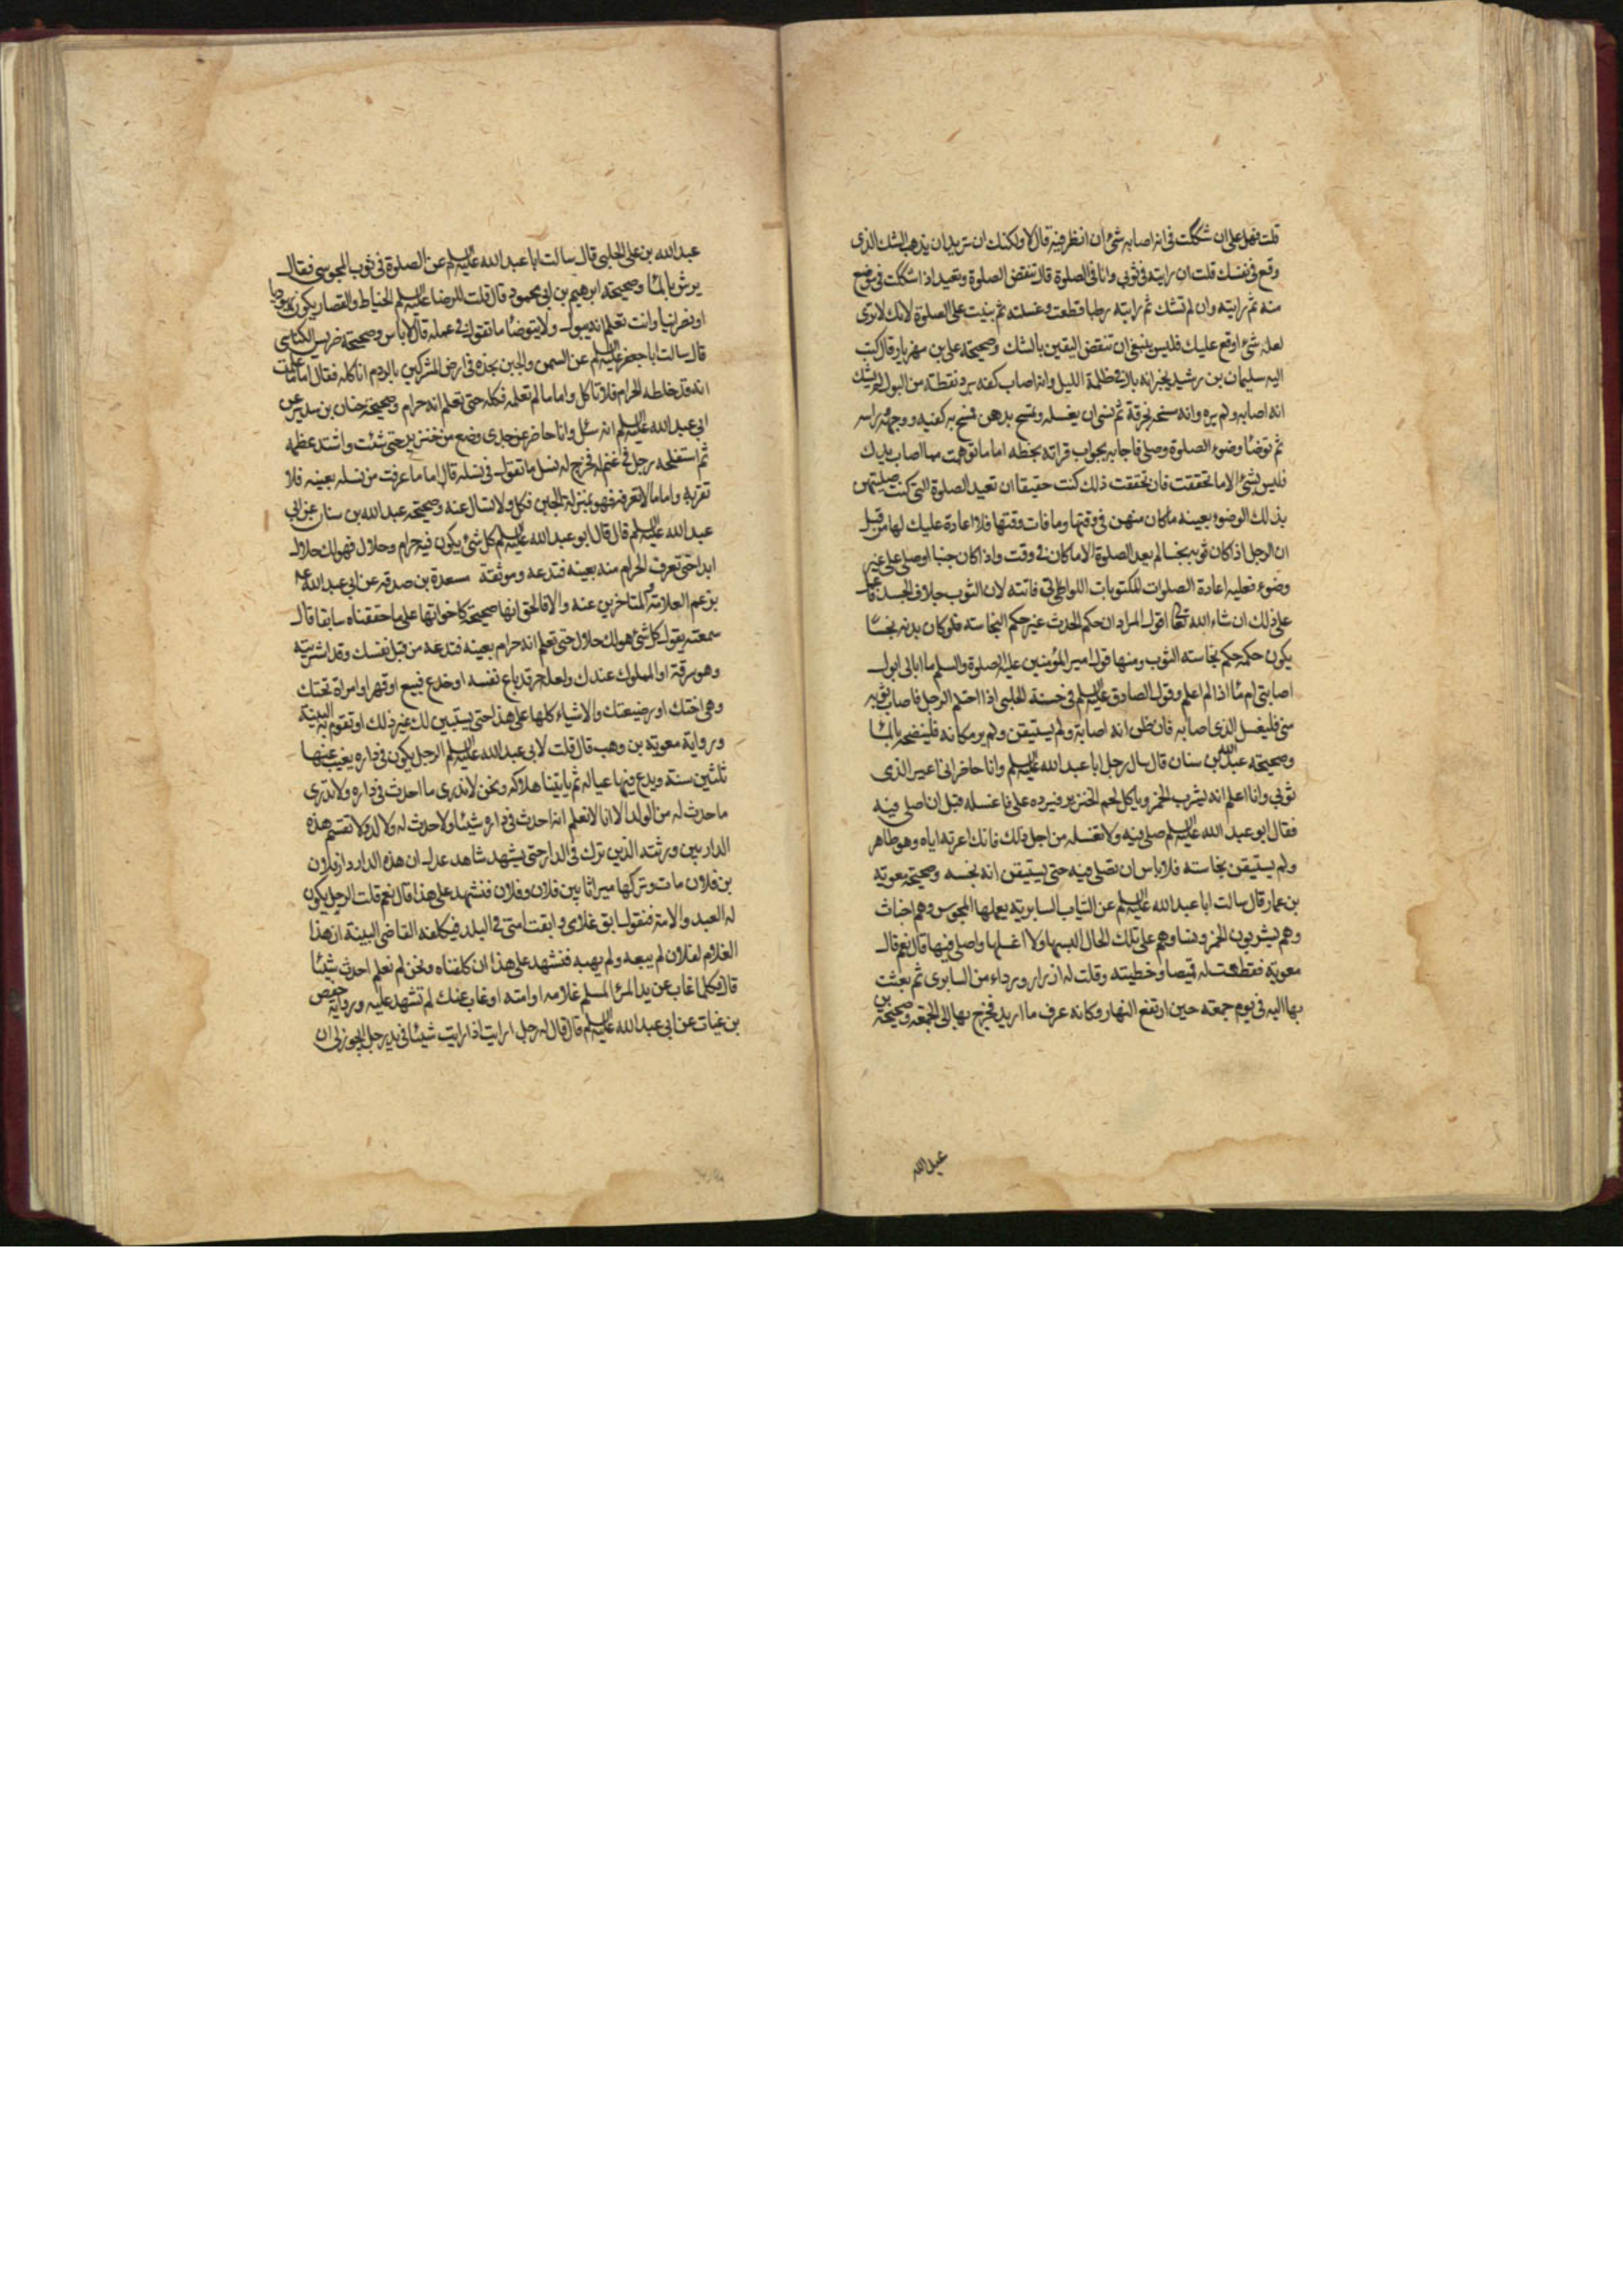 قلت فهل علی ان شككت فی انه اصابه شیٔ ان انظر فیه قال لا ولكنك ان تريد ان يذهب الشك الذی
وقع فی نفسك قلت ان رايته فی ثوبی وانا فی الصلوة قال تنقض الصلوة وتعيد اذا شككت فی موضع
منه ثم رايته وان لم تشك ثم رايته رطبا قطعت وغسلته ثم بنيت علی الصلوة لانك لا تدری
لعله شیٔ اوقع عليك فليس ينبغی ان تنقض اليقين بالشك وصحيحة علی بن مهزيار قال كتب
اليه سليمان بن رشيد يخبر انه بال فی ظلمة الليل وانه اصاب كفه برد نقطة من البول لم يشك
انه اصابه ولم يره وانه مسحه بخرقة ثم نسی ان يغسله وتمسح بدهن فمسح به كفيه ووجهه وراسه
ثم توضأ وضوء الصلوة وصلی فاجابه بجواب قراته بخطه اما ما توهمت مما اصاب يدك
فليس بشیٔ الا ما تحققت فان تحققت ذلك كنت حقيقا ان تعيد الصلوة التی كنت صليتهن
بذلك الوضوء بعينه ما كان منهن فی وقتها وما فات وقتها فلا اعادة عليك لها من قبل
ان الرجل اذا كان ثوبه نجسا لم يعد الصلوة الا ما كان فی وقت واذا كان جنبا او صلی علی غير
وضوء فعليه اعادة الصلوات المكتوبات اللواتی فاتته لان الثوب خلاف الجسد فاعمل
علی ذلك ان شاء الله تعالی اقول المراد ان حكم الحدث غير حكم النجاسة فلو كان بدنه نجسًا
يكون حكمه حكم نجاسة الثوب ومنها قول امير المؤمنين عليه الصلوة والسلم ما ابالی ابول
اصابنی ام مأ اذا لم اعلم وقول الصادق عليه السلم فی حسنة الحلبی اذا احتلم الرجل فاصاب ثوبه
منی فليغسل الذی اصابه فان ظن انه اصابه ولم يستيقن ولم ير مكانه فلينضحه بالمأ
وصحيحة عبد الله بن سنان قال سال رجل ابا عبد الله عليه السلم وانا حاضر انی اعير الذی
ثوبی وانا اعلم انه يشرب الخمر وياكل لحم الخنزير فيرده علی فاغسله قبل ان اصلی فيه
فقال ابو عبد الله عليه السلم صل فيه ولا تغسله من اجل ذلك فانك اعرته اياه وهو طاهر
ولم يستيقن نجاسته فلا باس ان تصلی فيه حتی يستيقن انه نجسه وصحيحة معوية
بن عمار قال سالت ابا عبد الله عليه السلم عن الثياب السابرية يعملها المجوس وهم اخباث
وهم يشربون الخمر ونساؤهم علی تلك الحال البسها ولا اغسلها واصلی فيها قال نعم قال
معوية فقطعت له قميصا وخطته وفتلت له ازرار ورداء من السابری ثم بعثت
بها اليه فی يوم جمعة حين ارتفع النهار وكانه عرف ما اريد فخرج بها الی الجمعة وصحيحة
عبد الله
عبد الله بن علی الحلبی قال سالت ابا عبد الله عليه السلم عن الصلوة فی ثوب المجوسی فقال
يرش بالمأ وصحيحة ابرهيم بن ابی محمود قال قلت للرضا عليه السلم الخياط والقصار يكون يهوديا
او نصرانيا وانت تعلم انه يبول ولا يتوضأ ما تقول فی عمله قال لا باس وصحيحة ضريس الكناسی
قال سالت ابا جعفر عليه السلم عن السمن والجبن نجده فی ارض المشركين بالروم اناكله فقال اما ما علمت
انه قد خلطه الحرام فلا تاكل واما ما لم تعلم فكله حتی تعلم انه حرام وصحيحة حنان بن سدير عن
ابی عبد الله عليه السلم انه سئل وانا حاضر عن جدی رضع من خنزير حتی شبت واشتد عظمه
ثم استفحله رجل فی غنمه فخرج له نسل ما تقول فی نسله قال اما ما عرفت من نسله بعينه فلا
تقربه واما ما لا تعرفه فهو بمنزلة الجبن فكل ولا تسال عنه وصحيحة عبد الله بن سنان عن ابی
عبد الله عليه السلم قال قال ابو عبد الله عليه السلم كل شیٔ يكون فيه حرام وحلال فهو لك حلال
ابدا حتی تعرف الحرام منه بعينه فتدعه وموثقة مسعدة بن صدقه عن ابی عبد الله ع
بزعم العلامة والمتاخرين عنه والا فالحق انها صحيحة كاخواتها علی ما حققناه سابقا قال
سمعته يقول كل شیٔ هو لك حلال حتی تعلم انه حرام بعينه فتدعه من قبل نفسك وقد اشتريته
وهو سرقة او المملوك عندك ولعله حر قد باع نفسه او خدع فبيع او قهر او امراة تحتك
وهی اختك او رضيعتك والاشياء كلها علی هذا حتی يستبين لك غير ذلك او تقوم به البينة
ورواية معوية بن وهب قال قلت لابی عبد الله عليه السلم الرجل يكون فی داره يغيب عنها
ثلثين سنة ويدع فيها عياله ثم ياتينا هلاكه ونحن لا ندری ما احدث فی داره ولا ندری
ما حدث له من الولد الا انا لا نعلم انه احدث فی داره شيئا ولا حدث له ولا لد ولا تقسم هذه
الدار بين ورثته الذين ترك فی الدار حتی يشهد شاهد عدل ان هذه الدار دار فلان
بن فلان مات وتركها ميراثا بين فلان وفلان فنشهد علی هذا قال نعم قلت الرجل يكون
له العبد والامة فنقول ابق غلامی وابقت امتی فی البلد فيكلفه القاضی البينة ان هذا
الغلام لفلان لم يبعه ولم يهبه فنشهد علی هذا ان كلفناه ونحن لم نعلم احدث شيئًا
قال فكلما غاب عن يد المرء المسلم غلامه او امته او غاب عنك لم تشهد عليه ورواية حفص
بن غياث عن ابی عبد الله عليه السلم قال قال له رجل ارايت اذا رايت شيئا فی يد رجل ايجوز لی ان